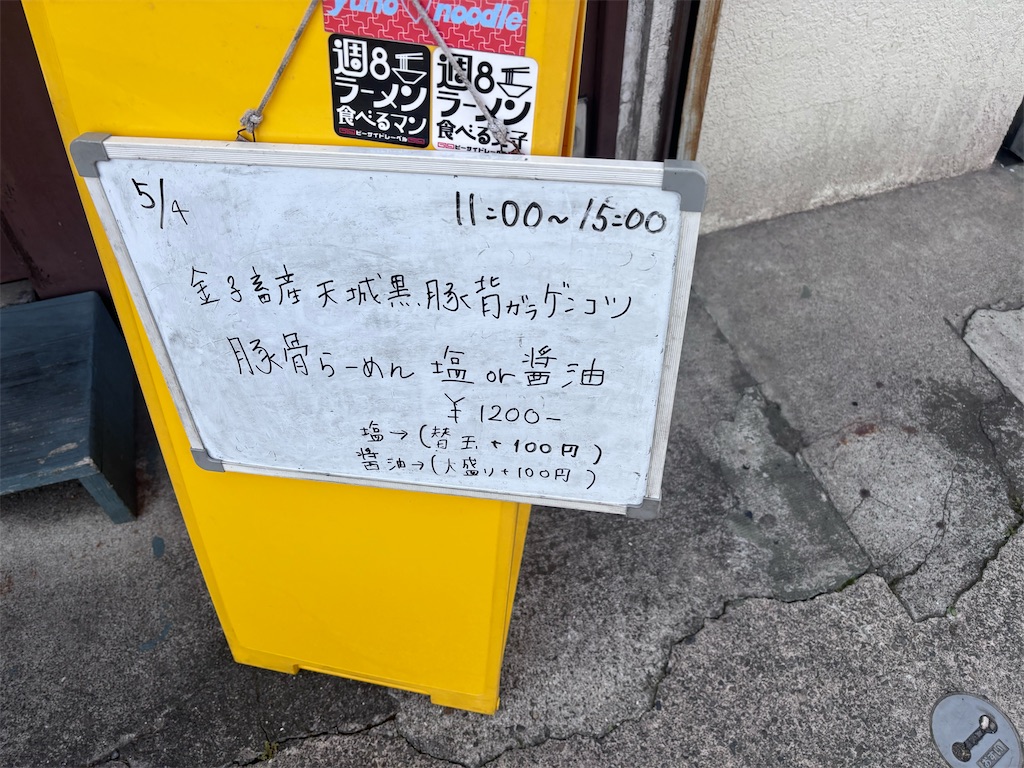 yuho noodle
週8
ラーメン
食べるマン
ビーサイドレーベル
週8
ラーメン
食べる女子
ビーサイドレーベル
5/4
11:00~15:00
金子畜産 天城黒豚背ガラゲンコツ
豚骨らーめん 塩 or 醤油
¥1200-
塩→(替玉+100円)
醤油→(大盛り+100円)